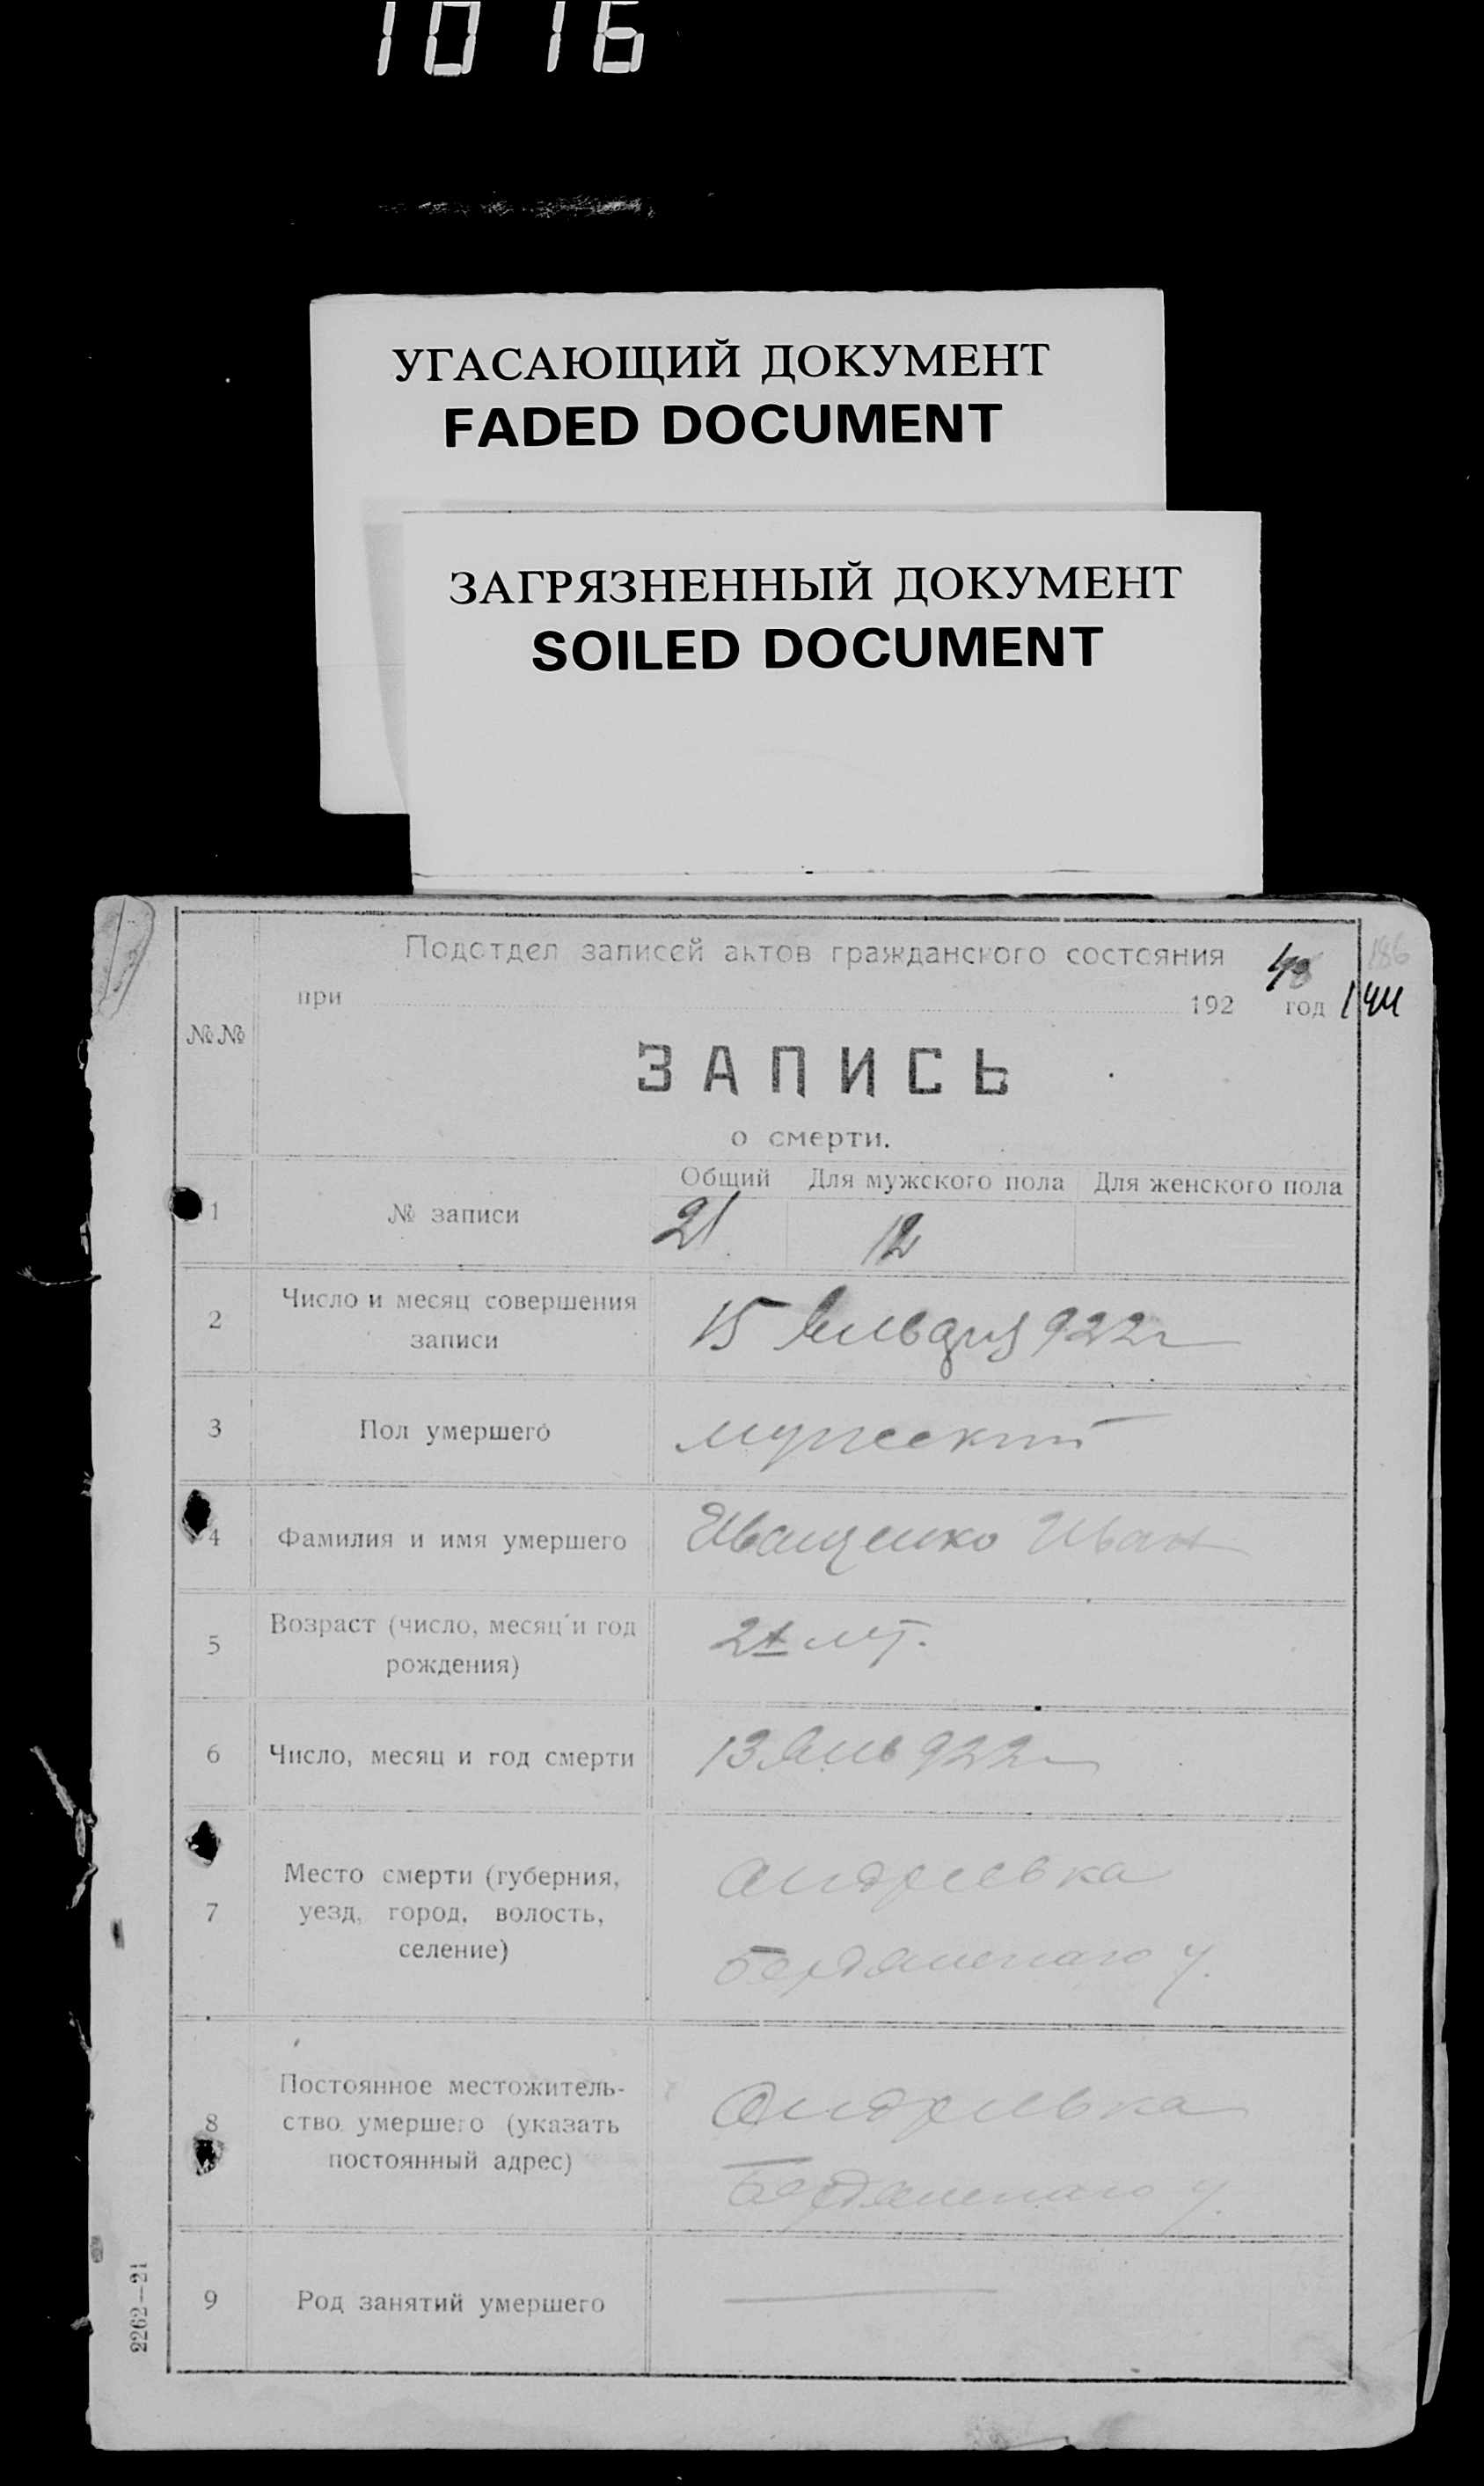 1016
УГАСАЮЩИЙ ДОКУМЕНТ
FADED DOCUMENT
ЗАГРЯЗНЕННЫЙ ДОКУМЕНТ
SOILED DOCUMENT
186
Подотдел записей актов гражданского состояния
при 192 год
№№
ЗАПИСЬ
о смерти.
Общий Для мужского пола Для женского пола
1 № записи 21 12
2 Число и месяц совершения
записи
15 Января 922 г
3 Пол умершего мужеский
4 Фамилия и имя умершего Иващенко Иван
5 Возраст (число, месяц и год
рождения)
2х лет.
6 Число, месяц и год смерти 13 Янв 922 г
7 Место смерти (губерния,
уезд, город, волость,
селение)
Андреевка
Бердянскаго у.
8 Постоянное местожитель-
ство умершего (указать
постоянный адрес)
Андреевка
Бердянскаго у.
9 Род занятий умершего
2262—21